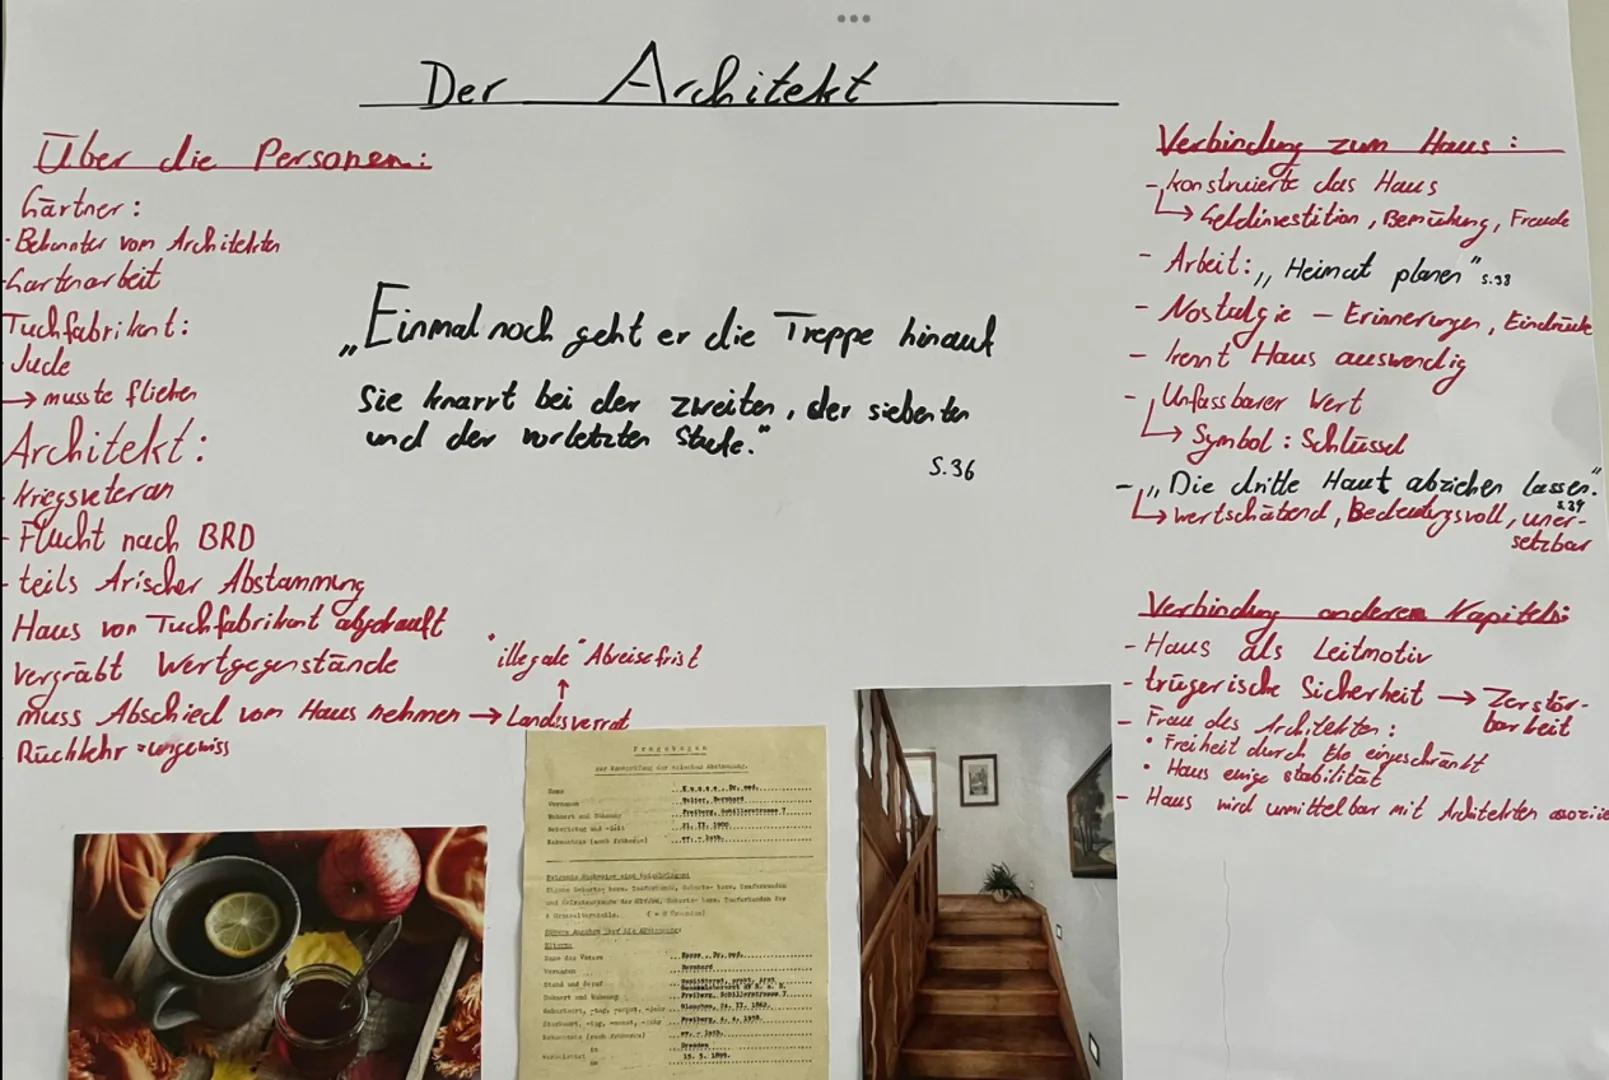 Der Architekt
Über die Personen:
Gärtner:
- Bekannter vom Architekten
- Gartenarbeit
Tuchfabrikant:
Jude
→ musste fliehen
Architekt:
- Kriegsveteran
- Flucht nach BRD
- teils Arischer Abstammung
Haus von Tuchfabrikant abgekauft
vergräbt Wertgegenstände
muss Abschied vom Haus nehmen → Landesverrat
"illegale" Abreisefrist
Rückkehr = ungewiss
„Einmal noch geht er die Treppe hinauf
Sie knarrt bei der zweiten, der siebenten
und der vorletzten Stufe."
S.36
Verbindung zum Haus:
- konstruierte das Haus
↳ Geldinvestition, Bemühung, Freude
- Arbeit: „Heimat planen" S.38
- Nostalgie – Erinnerungen, Eindrücke
- kennt Haus auswendig
- Unfassbarer Wert
↳ Symbol: Schlüssel
- „Die dritte Haut abziehen lassen." S.39
↳ wertschätend, Bedeutungsvoll, uner-
setzbar
Verbindung anderen Kapiteln:
- Haus als Leitmotiv
- trügerische Sicherheit → Zerstör-
barkeit
- Frau des Architekten:
• Freiheit durch Ehe eingeschränkt
• Haus einige stabilität
- Haus wird unmittelbar mit Architekten
Fragebogen
zur Nachprüfung der arischen Abstammung.
Name
Vornamen
Walter, Bernhard
Wohnort und Wohnung
Freiberg, Schillerstrasse 7
Name des Vaters
Vornamen
Bernhard
Stand und Beruf
Wohnort und Wohnung
Freiberg, Schillerstrasse 7
ev. - luth.
in
Dresden
15. 5. 1899.
am